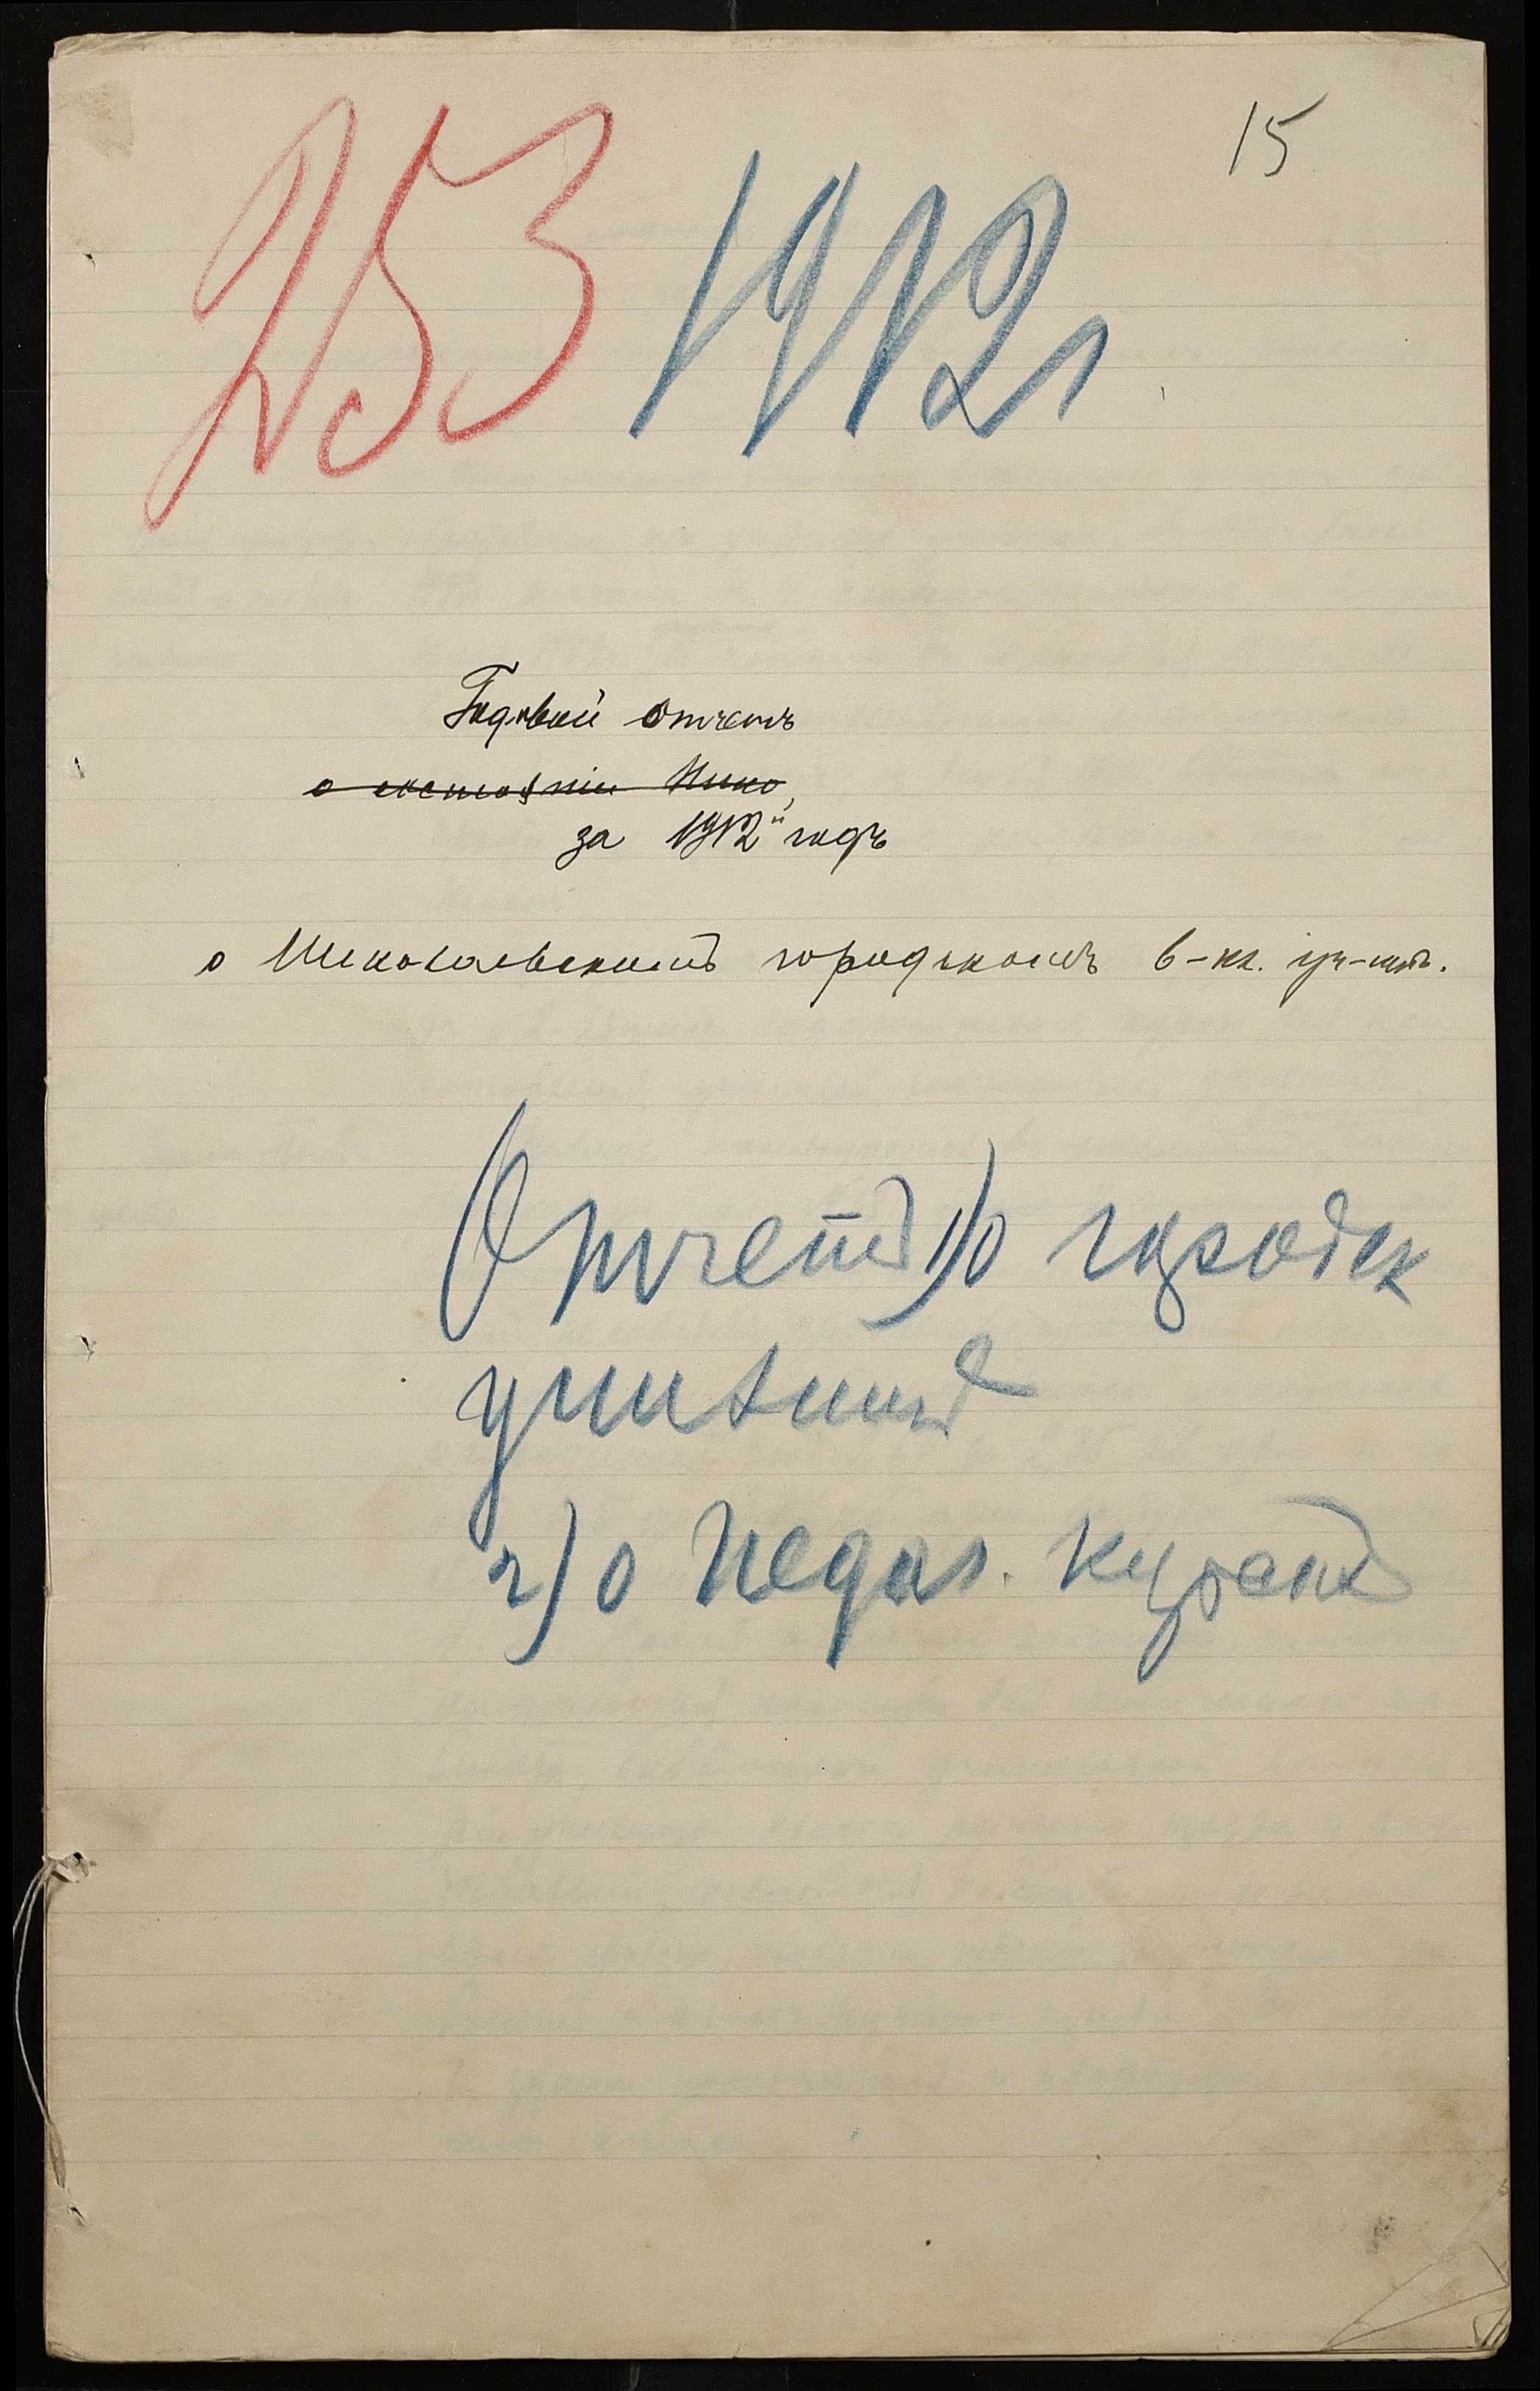 15
253 1912 г
Годовой отчетъ
о состояніи Нико
за 1912й годъ
о Николаевскомъ городскомъ 6-кл. уч-щѣ.
Отчетъ 1) о городск
училищѣ
2) о педаг. курсахъ